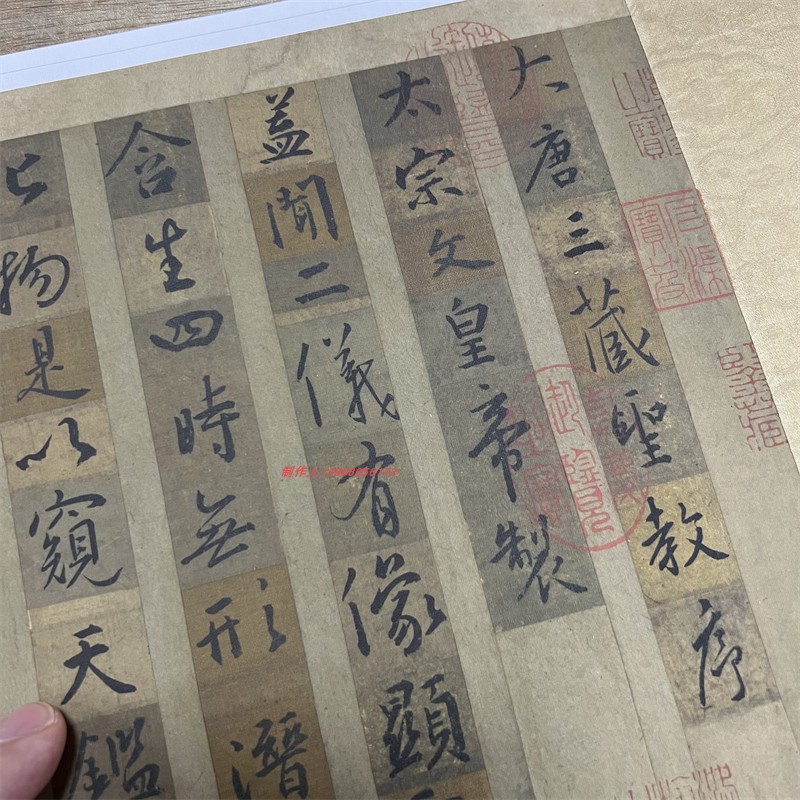 大唐三藏聖教序
太宗文皇帝製
蓋聞二儀有像顯
含生四時無形潛
物是以窺天鑑
制作人